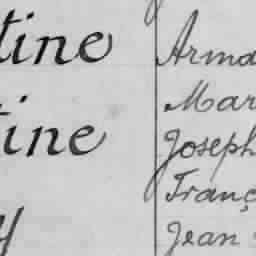 tine
Arma
Mar
tine
Joseph
Franç
y
Jean